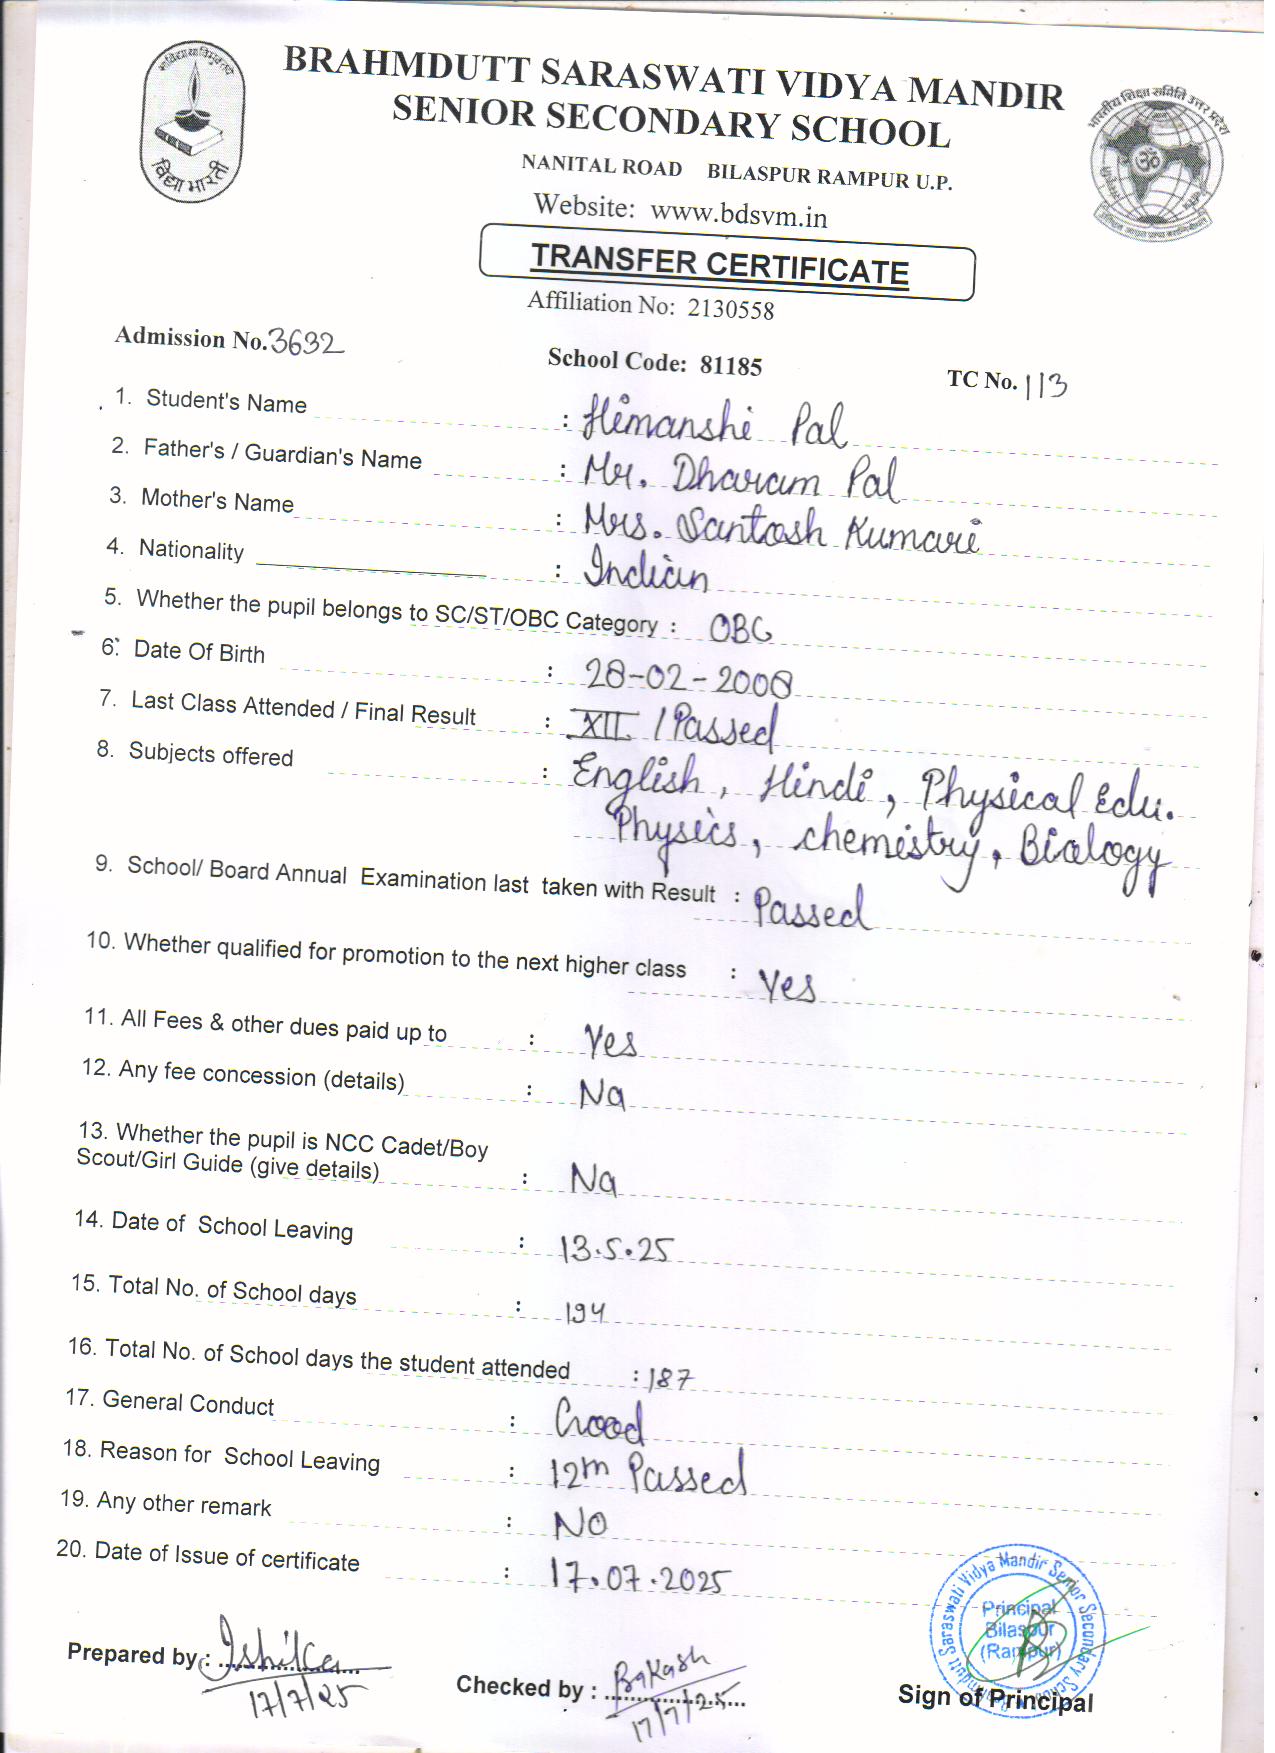 BRAHMDUTT SARASWATI VIDYA MANDIR
SENIOR SECONDARY SCHOOL
NANITAL ROAD BILASPUR RAMPUR U.P.
Website: www.bdsvm.in
विद्या भारती
भारतीय शिक्षा समिति उत्तर प्रदेश
TRANSFER CERTIFICATE
Affiliation No: 2130558
Admission No. 3632
School Code: 81185
TC No. 113
1. Student's Name : Himanshi Pal
2. Father's / Guardian's Name : Mr. Dharam Pal
3. Mother's Name : Mrs. Santosh Kumari
4. Nationality : Indian
5. Whether the pupil belongs to SC/ST/OBC Category : OBC
6. Date Of Birth : 28-02-2008
7. Last Class Attended / Final Result : XII / Passed
8. Subjects offered : English, Hindi, Physical Edu.
Physics, chemistry, Biology
9. School/ Board Annual Examination last taken with Result : Passed
10. Whether qualified for promotion to the next higher class : Yes
11. All Fees & other dues paid up to : Yes
12. Any fee concession (details) : Na
13. Whether the pupil is NCC Cadet/Boy
Scout/Girl Guide (give details) : Na
14. Date of School Leaving : 13.5.25
15. Total No. of School days : 194
16. Total No. of School days the student attended : 187
17. General Conduct : Good
18. Reason for School Leaving : 12th Passed
19. Any other remark : NO
20. Date of Issue of certificate : 17.07.2025
Brahmdutt Saraswati Vidya Mandir Senior Secondary School
Principal
Bilaspur
(Rampur)
Prepared by : Ishika
17/7/25
Checked by : Bakash
17/7/25
Sign of Principal